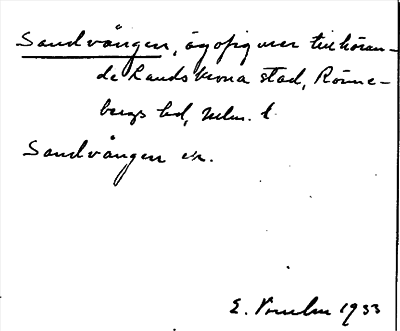 Sandvången, ägofigurer tillhöran-
de Landskrona stad, Rönne-
bergs hd, Mlm. l.
Sandvången ek.
E. 1933